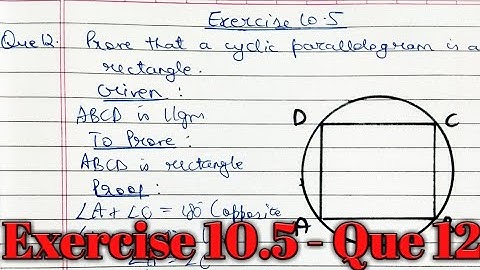 Exercise 10.5
Que 12. Prove that a cyclic parallelogram is a
rectangle.
Given :
ABCD is llgm
To Prove :
ABCD is rectangle
Proof :
∠A + ∠C = 180° (opposite
D
C
A
Exercise 10.5 - Que 12